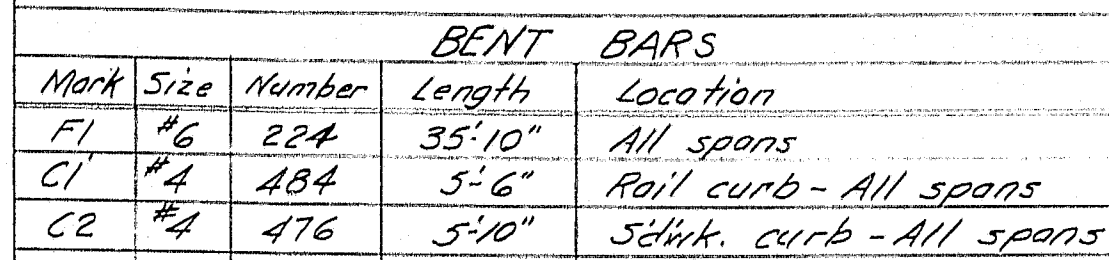 BENT BARS
Mark Size Number Length Location
F1 #6 224 35'-10" All spans
C1 #4 484 5'-6" Rail curb - All spans
C2 #4 476 5'-10" S'dwk. curb - All spans